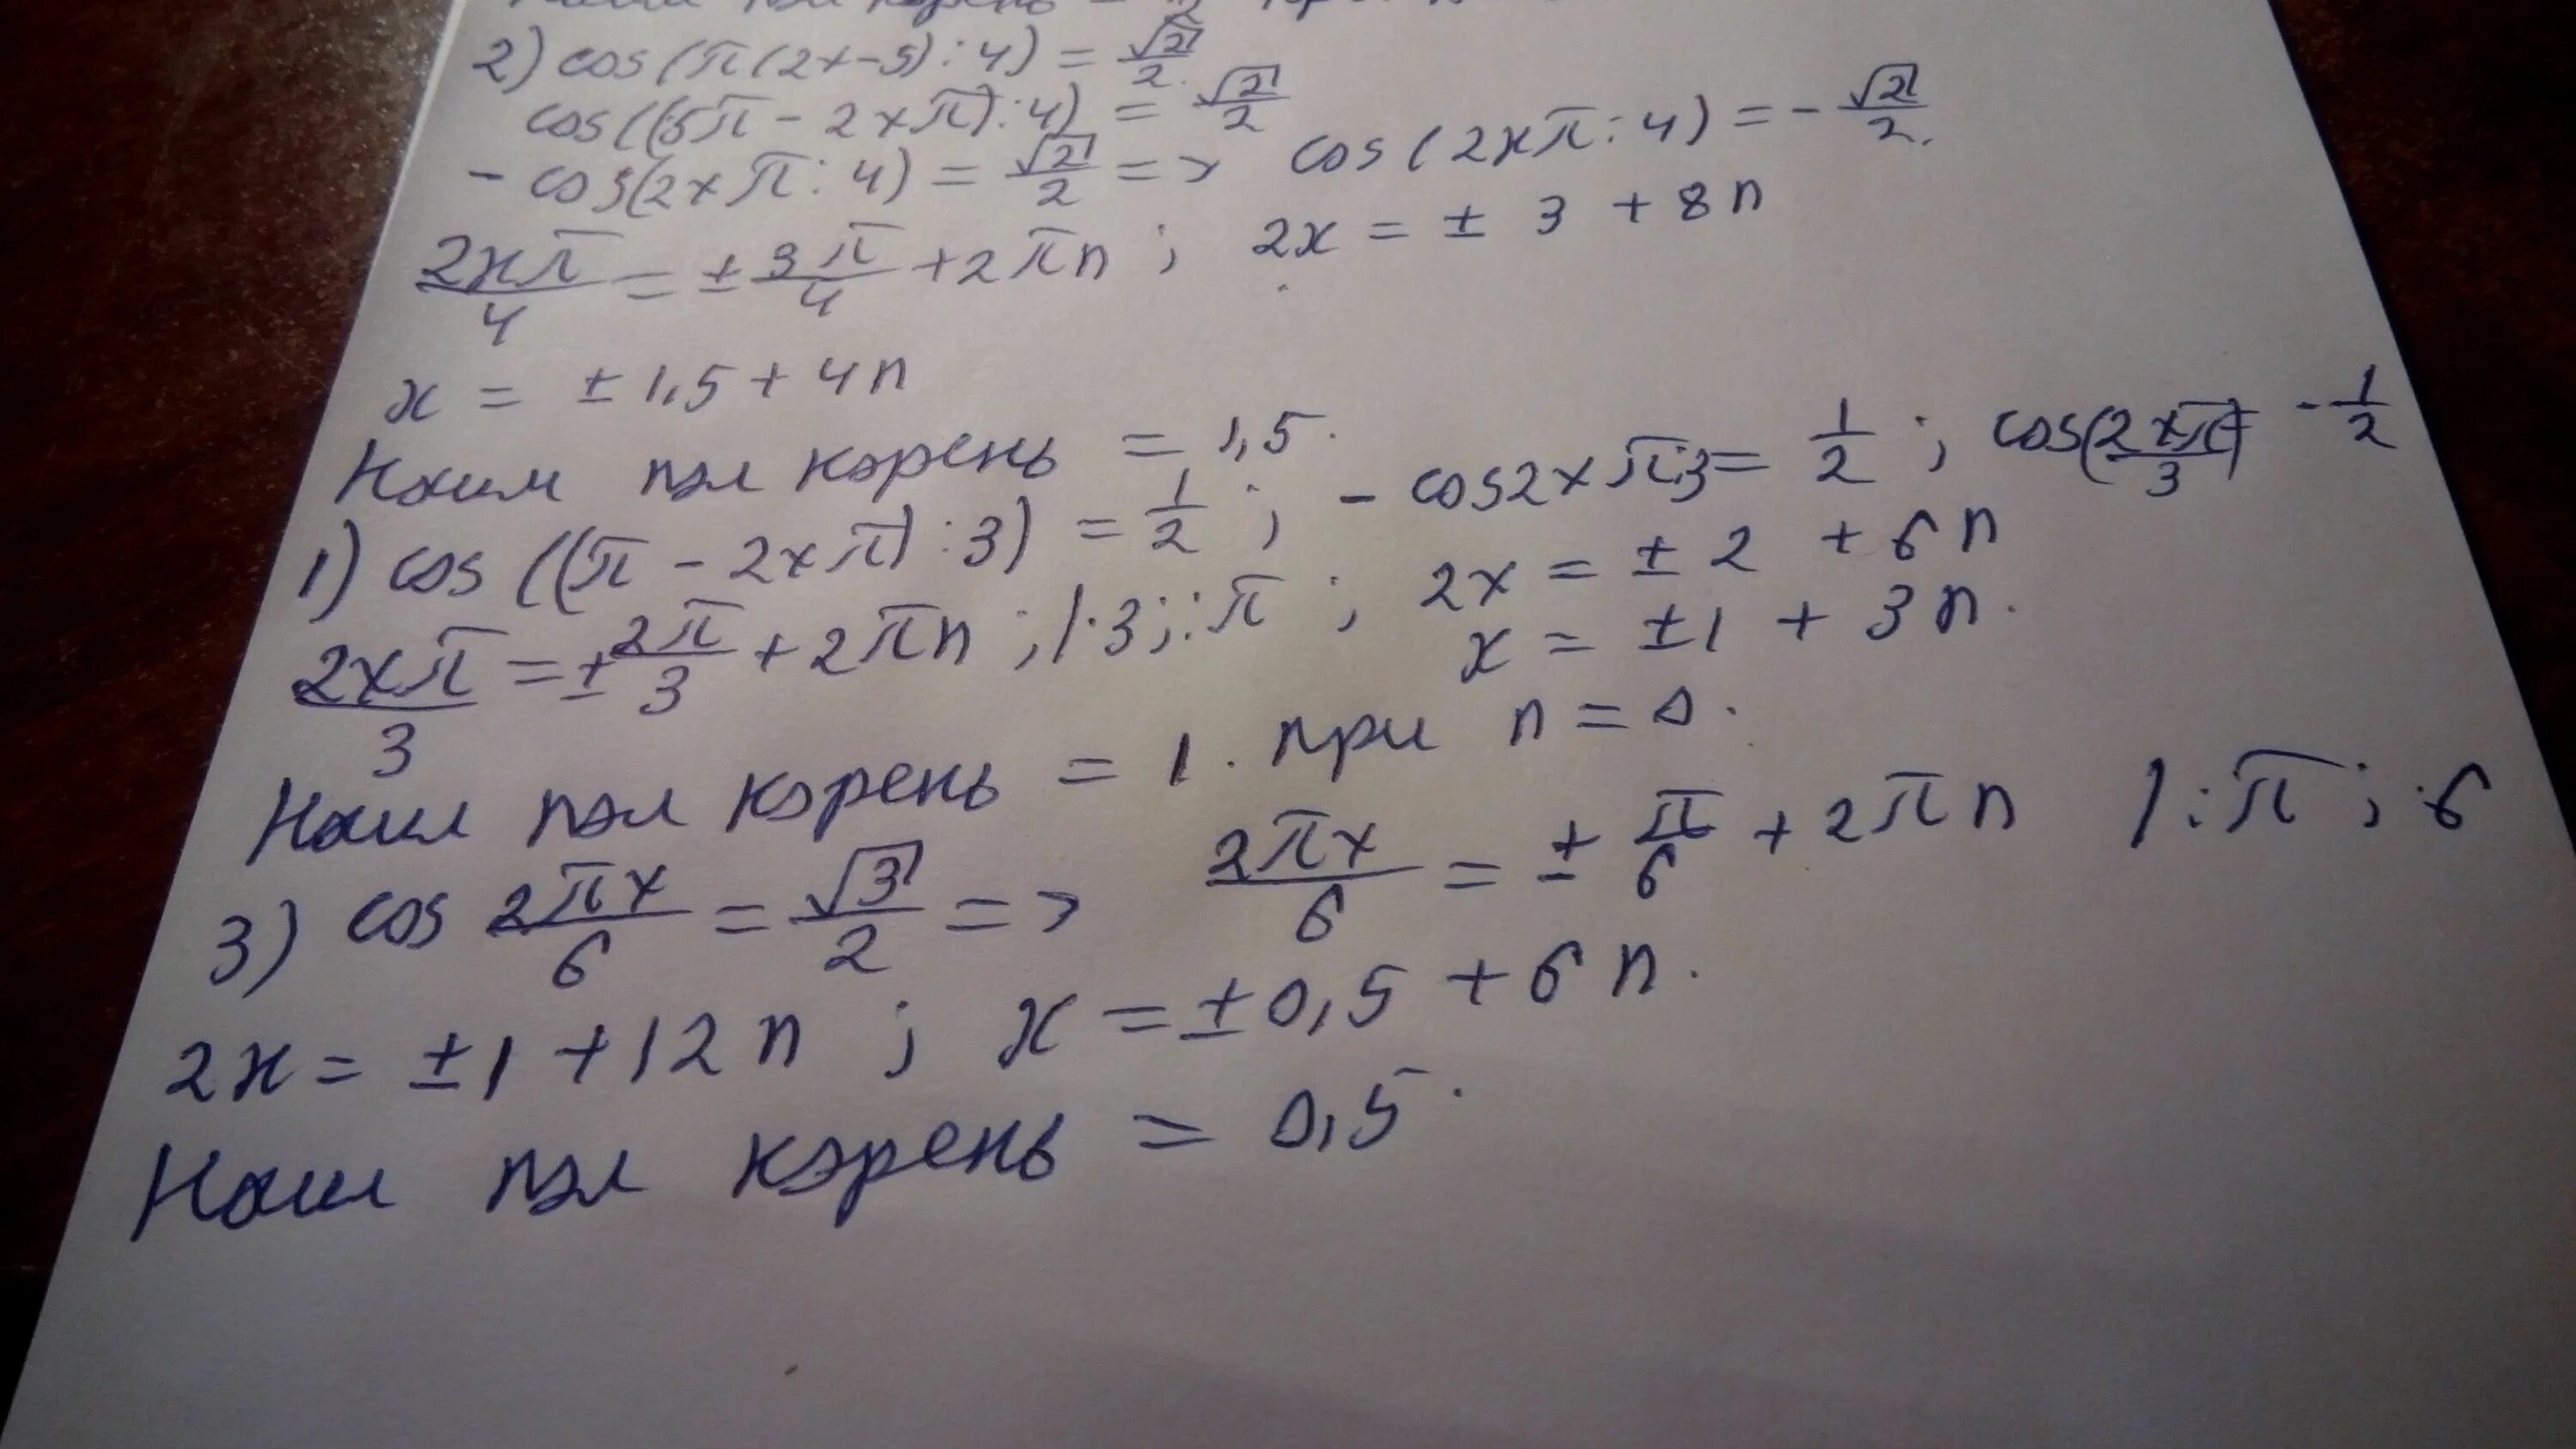 корень =
2) cos(π(2x-5):4) = √2/2
cos((5π - 2xπ):4) = √2/2
- cos(2xπ:4) = √2/2 => cos(2xπ:4) = - √2/2.
2xπ/4 = ± 3π/4 + 2πn; 2x = ± 3 + 8n
x = ± 1,5 + 4n
Наим пол корень = 1,5.
1) cos((π - 2xπ):3) = 1/2; - cos2xπ:3 = 1/2; cos(2xπ/3) = - 1/2
2xπ/3 = ± 2π/3 + 2πn; |·3; :π; 2x = ± 2 + 6n
x = ±1 + 3n.
Наим пол корень = 1. при n = 0.
3) cos 2πx/6 = √3/2 => 2πx/6 = ± π/6 + 2πn |:π; ·6
2x = ±1 + 12n; x = ±0,5 + 6n.
Наим пол корень = 0,5.